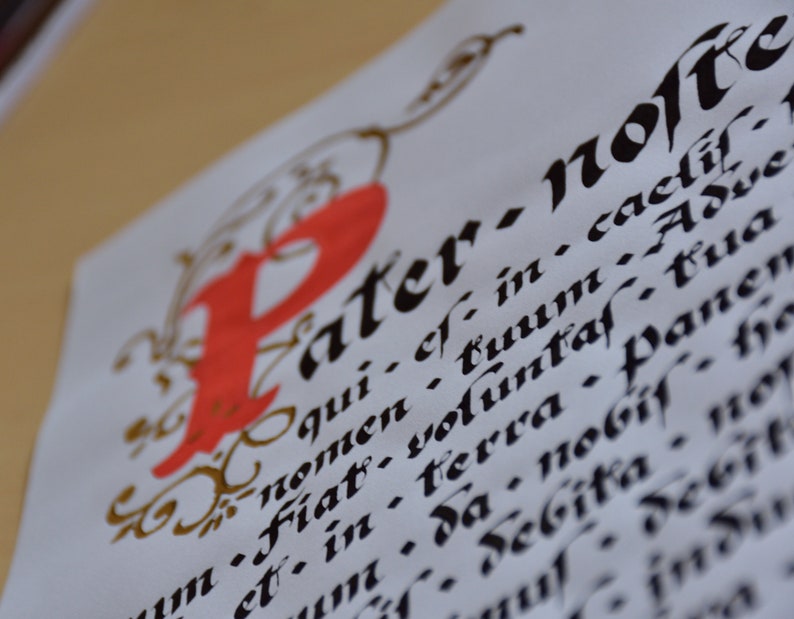 Pater · noſte
qui · eſ · in · caeliſ ·
nomen · tuum · Adve
uum · Fiat · voluntaſ · tua
et · in · terra · Panem
um · da · nobiſ · ho
iſ · debita · noſ
muſ · debit
indu